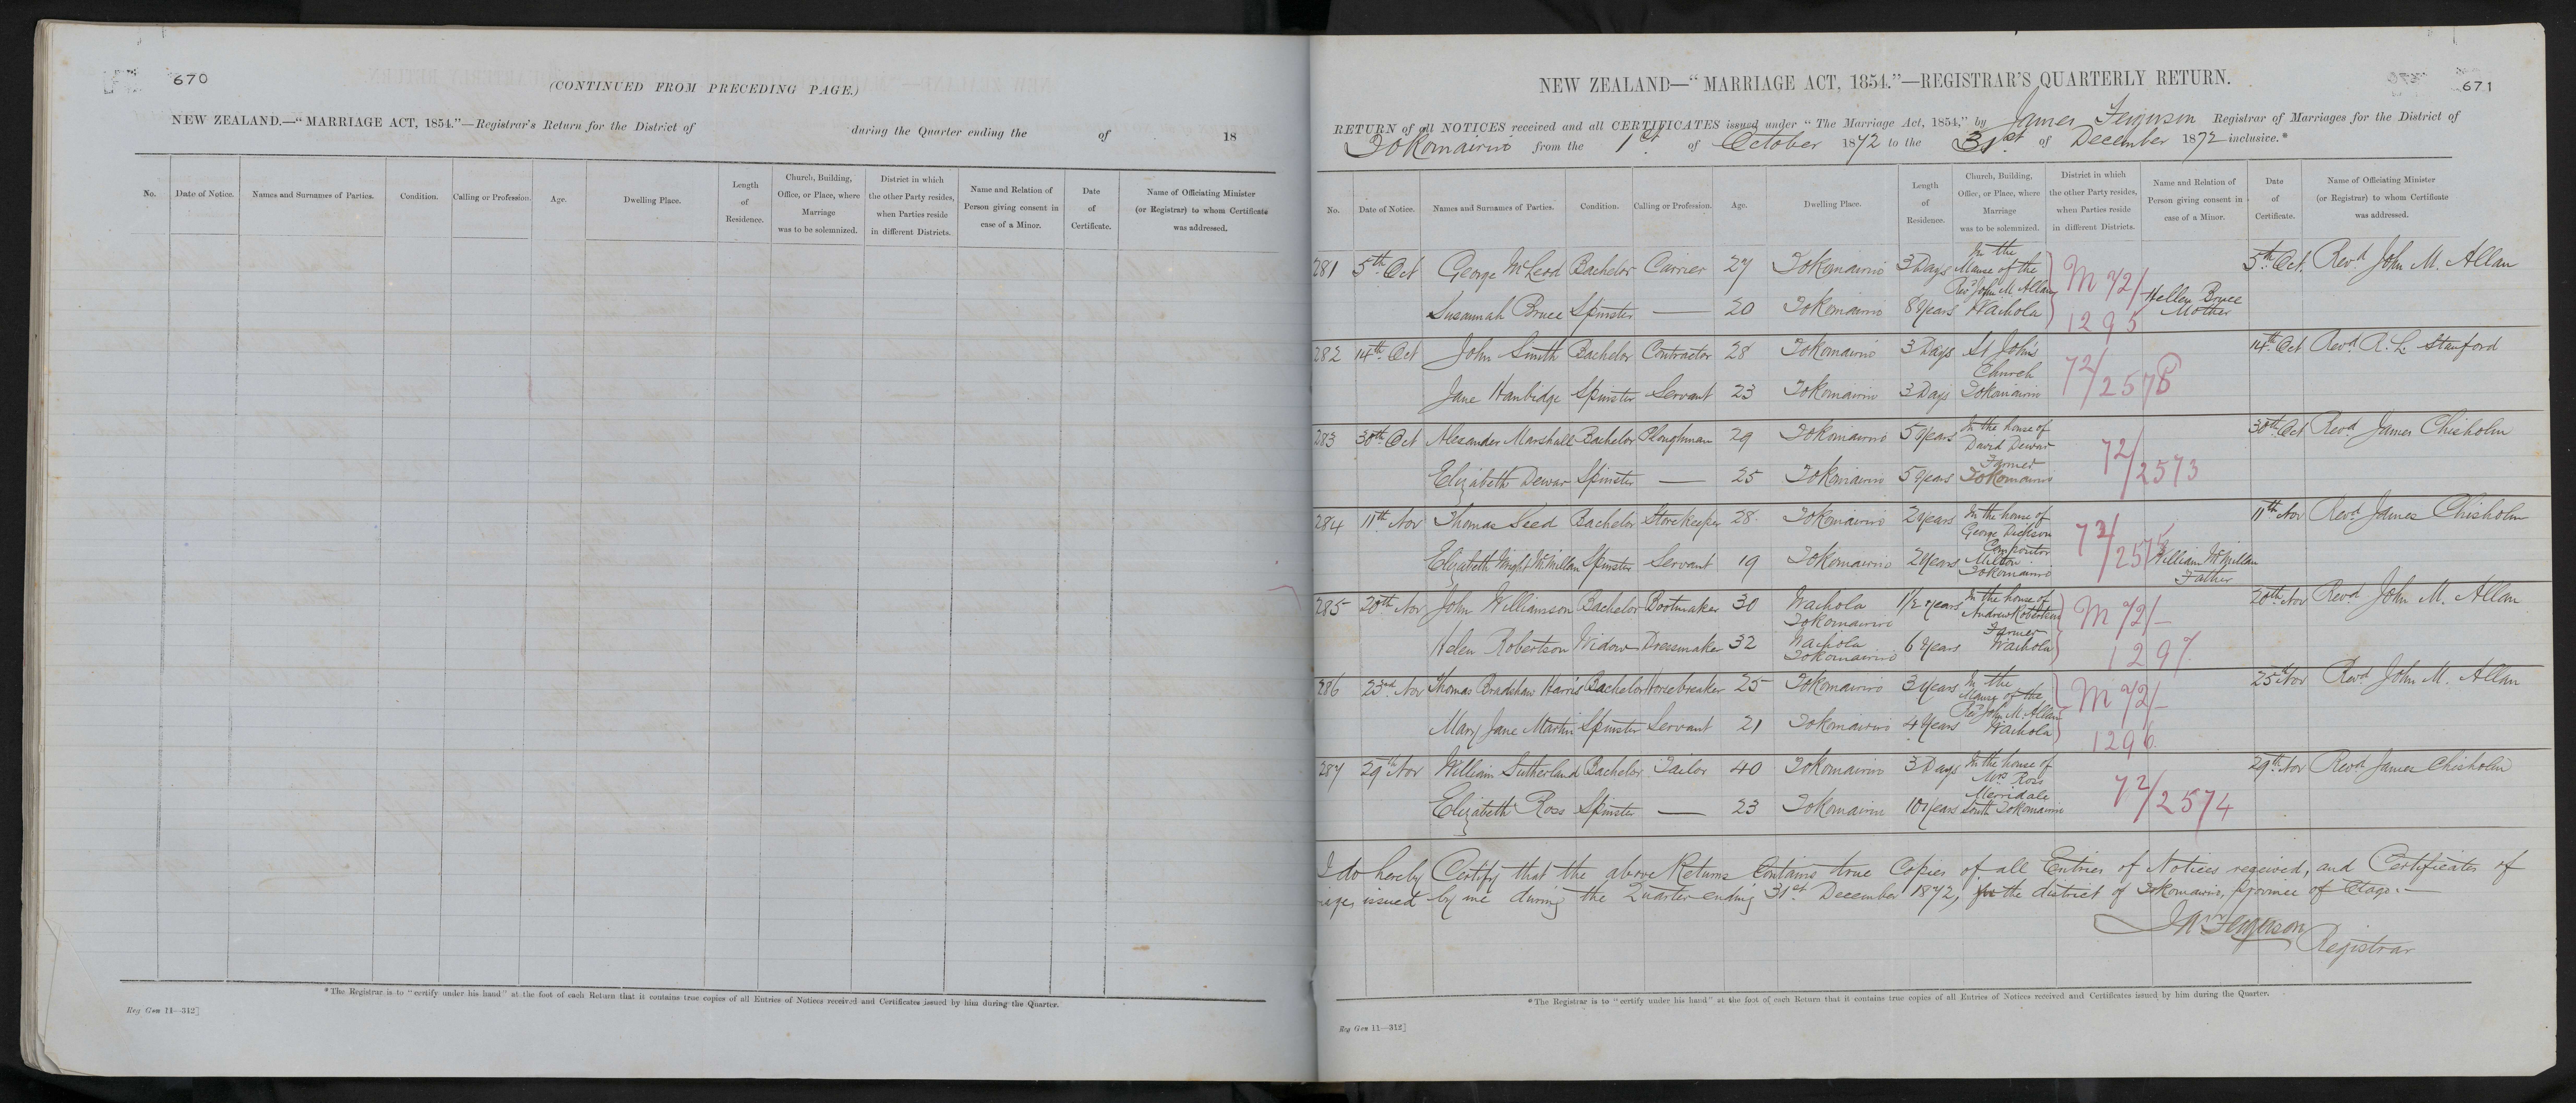 670
(CONTINUED FROM PRECEDING PAGE.)
NEW ZEALAND.—"MARRIAGE ACT, 1854."—Registrar's Return for the District of during the Quarter ending the of 18
No. Date of Notice. Names and Surnames of Parties. Condition. Calling or Profession. Age. Dwelling Place. Length of Residence. Church, Building, Office, or Place, where Marriage was to be solemnized. District in which the other Party resides, when Parties reside in different Districts. Name and Relation of Person giving consent in case of a Minor. Date of Certificate. Name of Officiating Minister (or Registrar) to whom Certificate was addressed.
*The Registrar is to "certify under his hand" at the foot of each Return that it contains true copies of all Entries of Notices received and Certificates issued by him during the Quarter.
Reg Gen 11—312]
671
NEW ZEALAND—"MARRIAGE ACT, 1854."—REGISTRAR'S QUARTERLY RETURN.
RETURN of all NOTICES received and all CERTIFICATES issued under "The Marriage Act, 1854," by James Ferguson Registrar of Marriages for the District of
Tokomairiro from the 1st of October 1872 to the 31st of December 1872 inclusive.*
No. Date of Notice. Names and Surnames of Parties. Condition. Calling or Profession. Age. Dwelling Place. Length of Residence. Church, Building, Office, or Place, where Marriage was to be solemnized. District in which the other Party resides, when Parties reside in different Districts. Name and Relation of Person giving consent in case of a Minor. Date of Certificate. Name of Officiating Minister (or Registrar) to whom Certificate was addressed.
281 5th Oct George McLeod Bachelor Carrier 27 Tokomairiro 3 Days In the Manse of the Revd John M. Allan M 72/ 5th Oct. Revd John M. Allan
Susannah Bruce Spinster — 20 Tokomairiro 8 Years Waihola 1295 Hellen Bruce Mother
282 14th Oct John Smith Bachelor Contractor 28 Tokomairiro 3 Days St John's Church 72/2578 14th Oct Revd R. L. Stanford
Jane Hanbidge Spinster Servant 23 Tokomairiro 3 Days Tokomairiro
283 30th Oct Alexander Marshall Bachelor Ploughman 29 Tokomairiro 5 Years In the house of David Dewar 72/2573 30th Oct Revd James Chisholm
Elizabeth Dewar Spinster — 25 Tokomairiro 5 Years Farmer Tokomairiro
284 11th Nov Thomas Seed Bachelor Storekeeper 28 Tokomairiro 2 Years In the house of George Dickson 72/2575 11th Nov Revd James Chisholm
Elizabeth Wright McMillan Spinster Servant 19 Tokomairiro 2 Years Compositor Milton Tokomairiro William McMillan Father
285 20th Nov John Williamson Bachelor Bootmaker 30 Waihola Tokomairiro 1½ Years In the house of Andrew Robertson M 72/— 20th Nov Revd John M. Allan
Helen Robertson Widow Dressmaker 32 Waihola Tokomairiro 6 Years Farmer Waihola 1297
286 23rd Nov Thomas Bradshaw Harris Bachelor Horsebreaker 25 Tokomairiro 3 Years In the Manse of the M 72/— 25th Nov Revd John M. Allan
Mary Jane Martin Spinster Servant 21 Tokomairiro 4 Years Revd John M. Allan Waihola 1296
287 29th Nov William Sutherland Bachelor Tailor 40 Tokomairiro 3 Days In the house of Mrs Ross 72/2574 29th Nov Revd James Chisholm
Elizabeth Ross Spinster — 23 Tokomairiro 10 Years Merridale South Tokomairiro
I do hereby Certify that the above Returns Contains true Copies of all Entries of Notices received, and Certificates of
issued by me during the Quarter ending 31st December 1872, for the district of Tokomairiro, Province of Otago.—
Jas Ferguson
Registrar
*The Registrar is to "certify under his hand" at the foot of each Return that it contains true copies of all Entries of Notices received and Certificates issued by him during the Quarter.
Reg Gen 11—312]